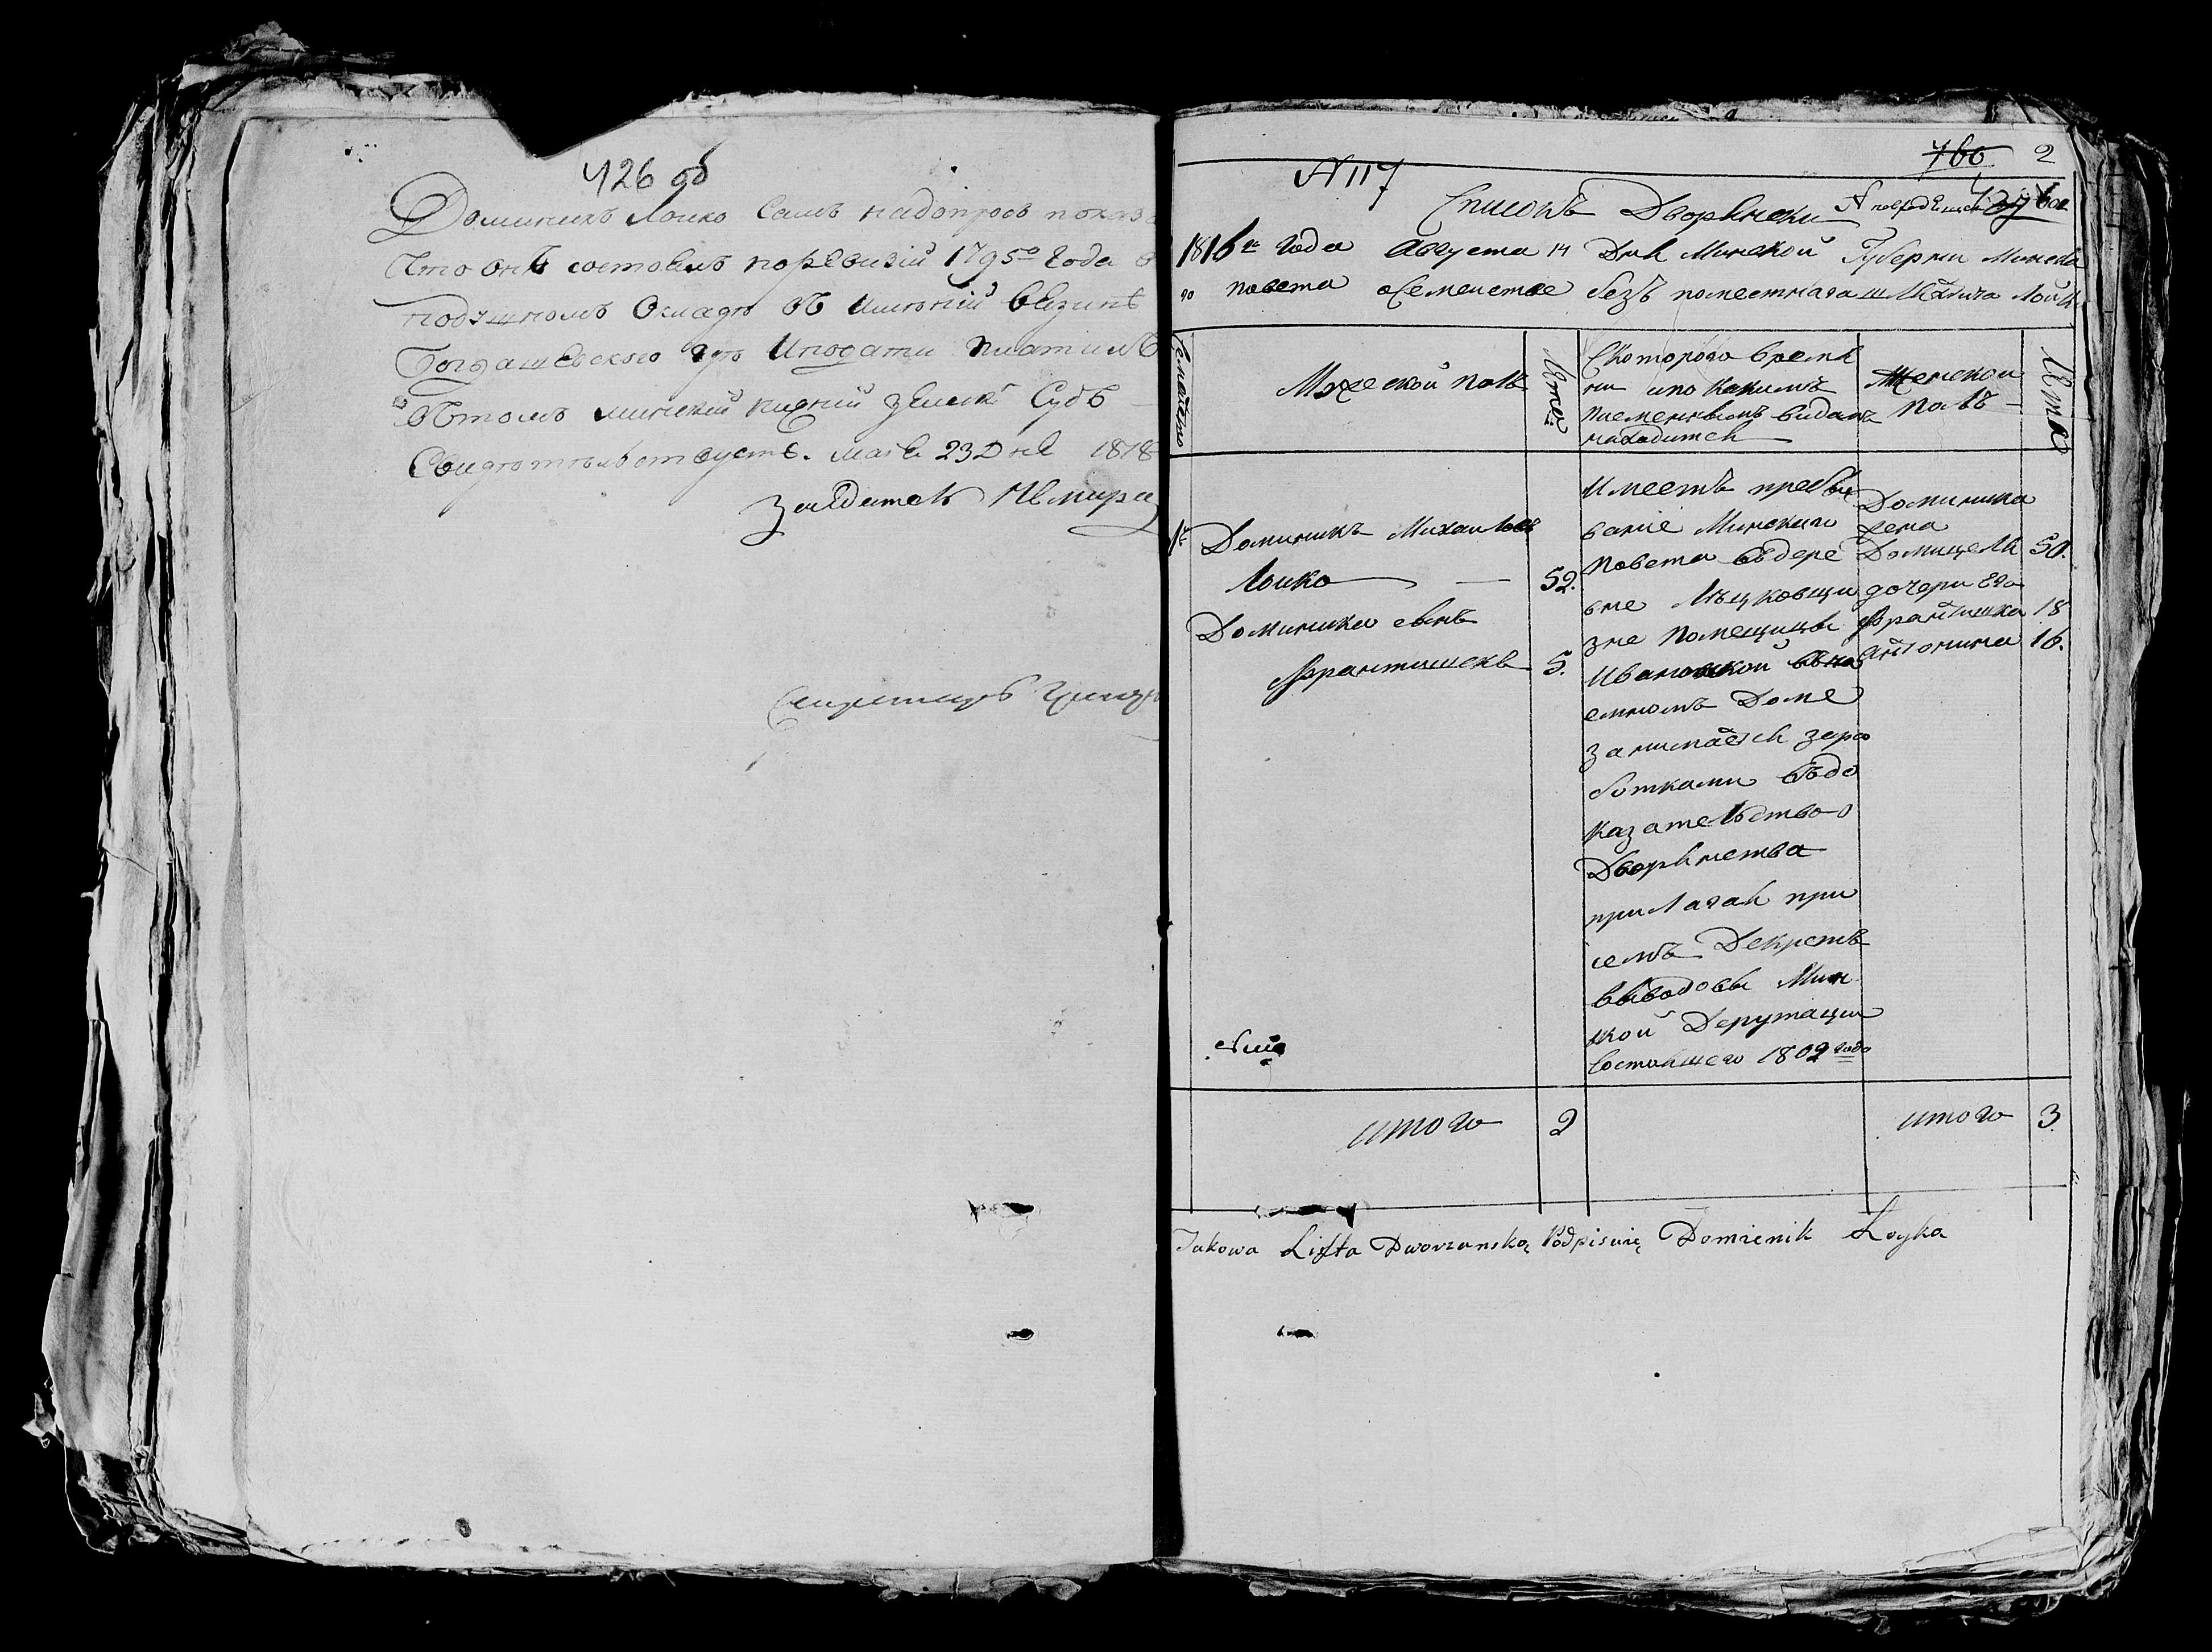 426 об
Доминикъ Лойко Самъ надопросъ показ
Что онъ состоялъ поревизій 1795го Года в
подушномъ Окладѣ въ Имѣній
Богдашевского гдѣ Иподати платилъ
вътомъ минский нижний Земск Судъ
Свидѣтельствуетъ. Маія 23 Дня 1818
Засѣдатель
Секретарь
760 2
N 117
Списокъ Дворянски
1816го Года Августа 14 Дня Минской Губерни Минска
го повета осемействе безъ поместнага шляхтича Лойк
Мужеской полъ
Лѣта
Скоторого время
ни ипо какимъ
писменнымъ видамъ
находится
Женской
полъ
Лѣта
1й Доминикъ Михайловъ
Лойко 52.
Доминика сынъ
Франтишекъ 5.
Имеетъ пребы
вание Минскаго
повета въдере
вне
зне помещицы
Ивановской внае
емномъ Доме
занимается зара
ботками въдо
казательство
Дворянства
прилагая при
семъ Декретъ
выводовы Мин
ской Депутации
Состоявшего 1802 года
Доминика
жена
Домицеля 50.
дочери Его
Франтишка 18
Антонина 16.
итого 2
итого 3.
Takowa Lista Dworzanską Podpisuię Domienik Łoyka